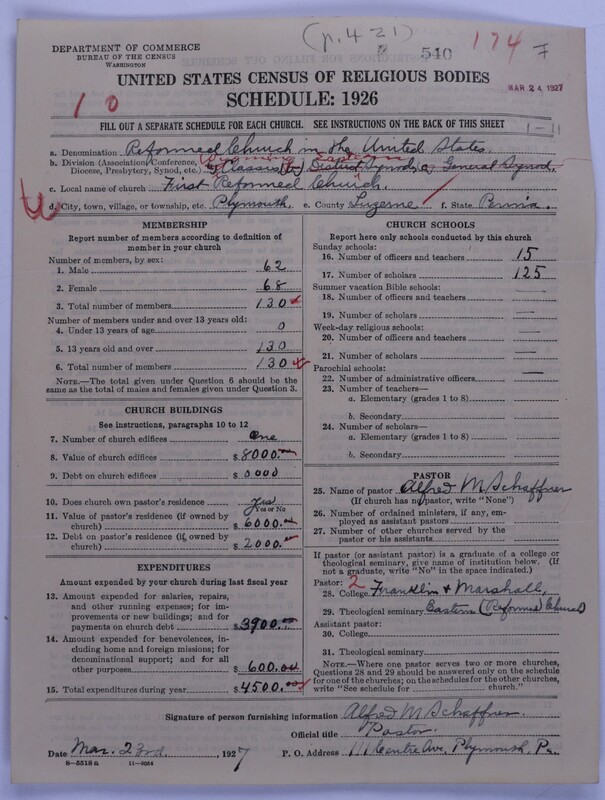 (p. 421)
540
174 7
DEPARTMENT OF COMMERCE
BUREAU OF THE CENSUS
WASHINGTON
UNITED STATES CENSUS OF RELIGIOUS BODIES
MAR 24 1927
10
SCHEDULE: 1926
FILL OUT A SEPARATE SCHEDULE FOR EACH CHURCH. SEE INSTRUCTIONS ON THE BACK OF THIS SHEET
1-11
a. Denomination Reformed Church in the United States.
Wyoming Eastern
b. Division (Association, Conference, Diocese, Presbytery, Synod, etc.) Classis District Synod, General Synod.
c. Local name of church First Reformed Church.
d. City, town, village, or township, etc. Plymouth. e. County Luzerne f. State Penna.
MEMBERSHIP
Report number of members according to definition of
member in your church
Number of members, by sex:
1. Male 62
2. Female 68
3. Total number of members 130
Number of members under and over 13 years old:
4. Under 13 years of age 0
5. 13 years old and over 130
6. Total number of members 130
NOTE.—The total given under Question 6 should be
the same as the total of males and females given under Question 3.
CHURCH BUILDINGS
See instructions, paragraphs 10 to 12
7. Number of church edifices One
8. Value of church edifices $ 8000.00
9. Debt on church edifices $ 0000
10. Does church own pastor's residence? Yes
Yes or No
11. Value of pastor's residence (if owned by
church) $ 6000.00
12. Debt on pastor's residence (if owned by
church) $ 2000.
EXPENDITURES
Amount expended by your church during last fiscal year
13. Amount expended for salaries, repairs,
and other running expenses; for im-
provements or new buildings; and for
payments on church debt $ 3900.00
14. Amount expended for benevolences,
including home and foreign missions; for
denominational support; and for all
other purposes $ 600.00
15. Total expenditures during year $ 4500.00
CHURCH SCHOOLS
Report here only schools conducted by this church
Sunday schools:
16. Number of officers and teachers 15
17. Number of scholars 125
Summer vacation Bible schools:
18. Number of officers and teachers —
19. Number of scholars —
Week-day religious schools:
20. Number of officers and teachers —
21. Number of scholars —
Parochial schools:
22. Number of administrative officers —
23. Number of teachers—
a. Elementary (grades 1 to 8)
b. Secondary
24. Number of scholars—
a. Elementary (grades 1 to 8)
b. Secondary
PASTOR
25. Name of pastor Alfred M Schaffner
(If church has no pastor, write "None")
26. Number of ordained ministers, if any, em-
ployed as assistant pastors
27. Number of other churches served by the
pastor or his assistants
If pastor (or assistant pastor) is a graduate of a college or
theological seminary, give name of institution below. (If
not a graduate, write "No" in the space indicated.)
Pastor: 2
28. College Franklin & Marshall,
29. Theological seminary Eastern (Reformed Church)
Assistant pastor:
30. College
31. Theological seminary
NOTE.—Where one pastor serves two or more churches,
Questions 28 and 29 should be answered only on the schedule
for one of the churches; on the schedules for the other churches,
write "See schedule for church."
Signature of person furnishing information Alfred M Schaffner.
Official title Pastor.
Date Mar. 23rd, 1927 P. O. Address 111 Centre Ave., Plymouth, Pa.
8-5518 a 11-9064